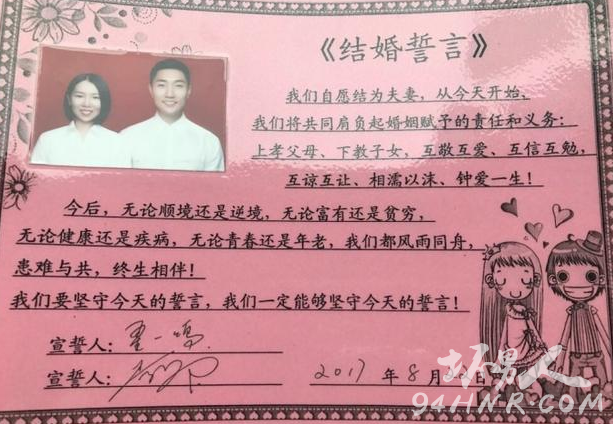 《结婚誓言》
我们自愿结为夫妻，从今天开始，
我们将共同肩负起婚姻赋予的责任和义务：
上孝父母、下教子女，互敬互爱、互信互勉，
互谅互让、相濡以沫、钟爱一生！
今后，无论顺境还是逆境，无论富有还是贫穷，
无论健康还是疾病，无论青春还是年老，我们都风雨同舟，
患难与共，终生相伴！
我们要坚守今天的誓言，我们一定能够坚守今天的誓言！
宣誓人：
宣誓人：
2017 年 8 月 日
坏男人
94HNR.COM